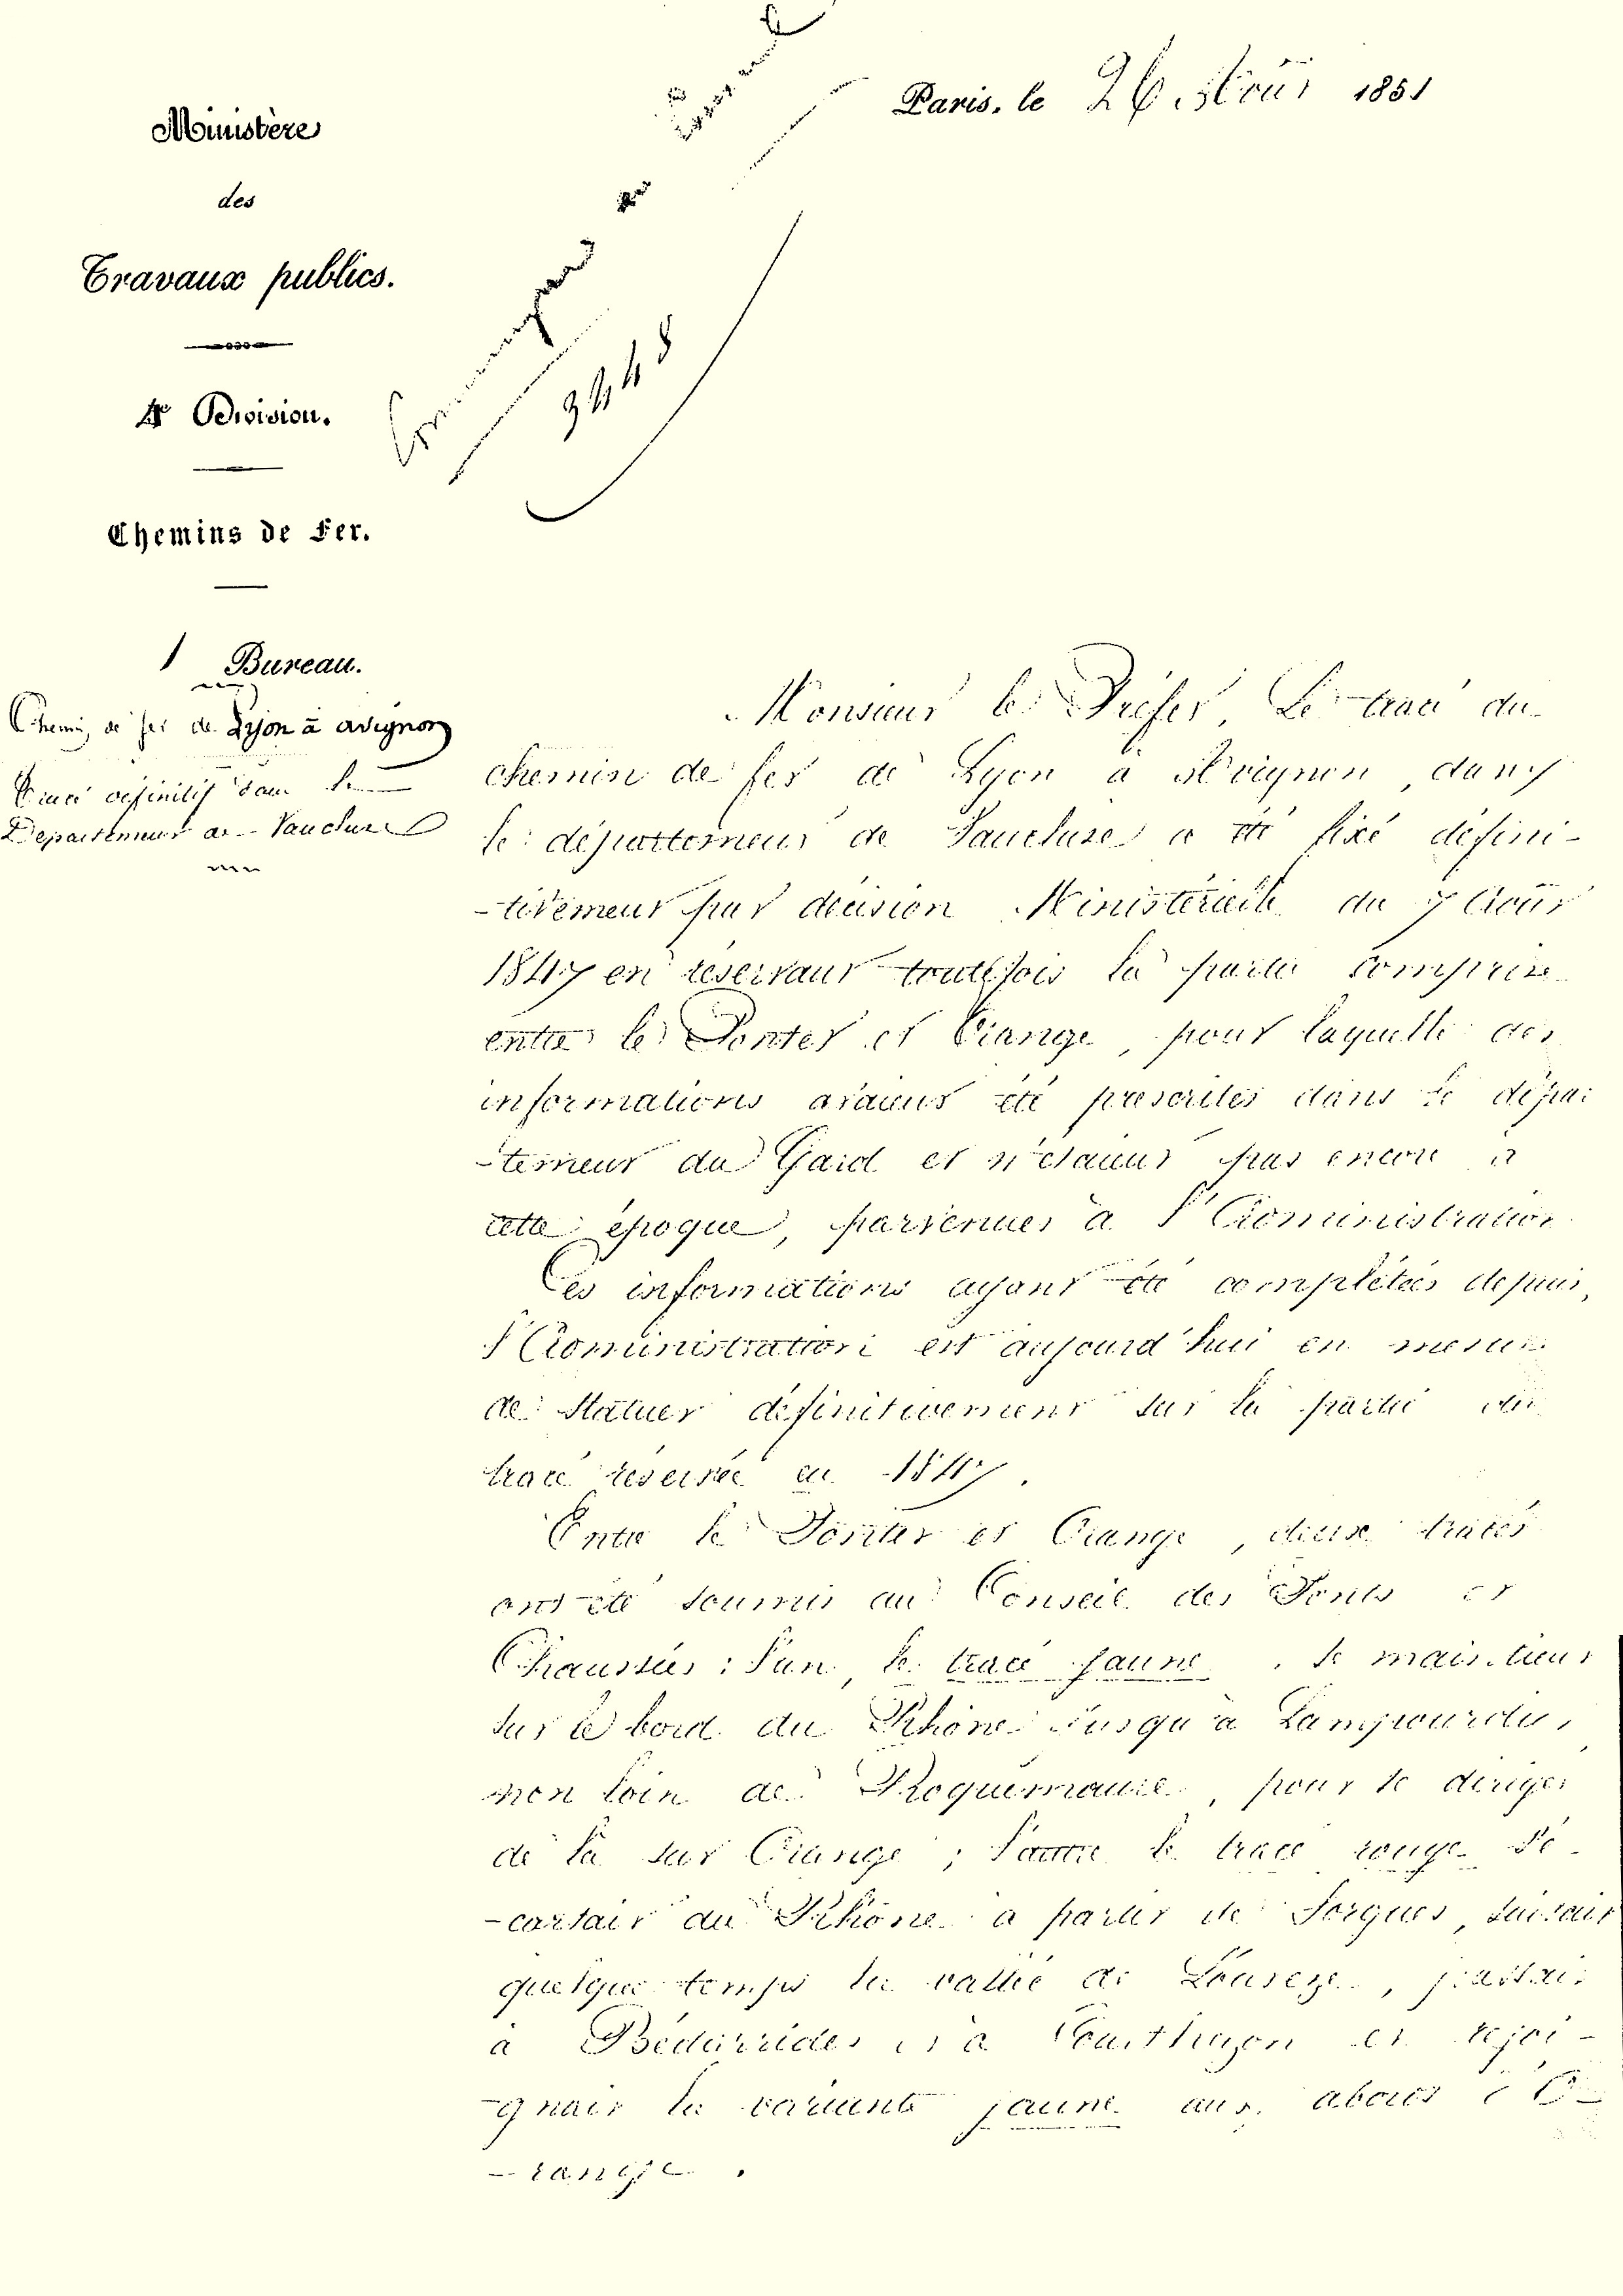 Paris, le 26 Août 1851
Ministère
des
Travaux publics.
9448
4e Division.
Chemins de Fer.
1 Bureau.
Chemin de fer de Lyon à avignon
Tracé définitif dans le
Departement de Vaucluse
Monsieur le Préfet, Le tracé du
chemin de fer de Lyon à Avignon, dans
le département de Vaucluse a été fixé défini-
-tivement par décision Ministérielle du 7 Août
1847 en réservant toutefois la partie comprise
entre le Pontet et Orange, pour laquelle des
informations avaient été prescrites dans le dépar
-tement du Gard et n'étaient pas encore à
cette époque, parvenues à l'Administration.
Ces informations ayant été complétées depuis,
l'Administration est aujourd'hui en mesure
de Statuer définitivement sur la partie du
tracé réservée en 1847.
Entre le Pontet et Orange, deux tracés
ont été soumis au Conseil des Ponts et
Chaussées : l'un, le tracé jaune, se maintient
sur le bord du Rhône jusqu'à Lampourdu,
non loin de Roquemaure, pour se diriger
de là sur Orange ; l'autre le tracé rouge s'é-
-cartait du Rhône à partir de Sorgues, suivait
quelque temps la vallée de Louvèze, passait
à Bédarrides et à Courthezon et rejoi-
-gnait la variante jaune aux abords d'O-
-range.